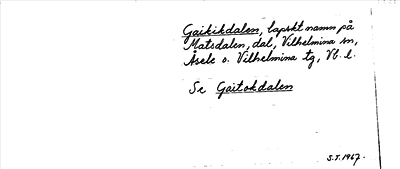 Gaikikdalen, lapskt namn på
Matsdalen, dal, Vilhelmina sn,
Åsele o. Vilhelmina tg, Vb. l.
Se Gaitokdalen
S.S. 1967.